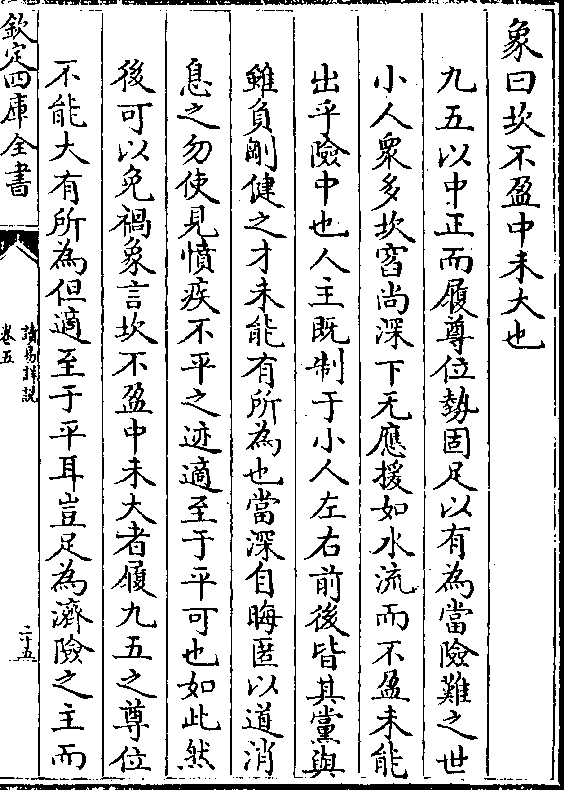 象曰坎不盈中未大也
九五以中正而履尊位勢固足以有為當險難之世
小人衆多坎窞尚深下无應援如水流而不盈未能
出乎險中也人主既制于小人左右前後皆其黨與
雖負剛健之才未能有所為也當深自晦匿以道消
息之勿使見憤疾不平之迹適至于平可也如此然
後可以免禍象言坎不盈中未大者履九五之尊位
不能大有所為但適至于平耳豈足為濟險之主而
欽定四庫全書
讀易詳說
卷五
二十五